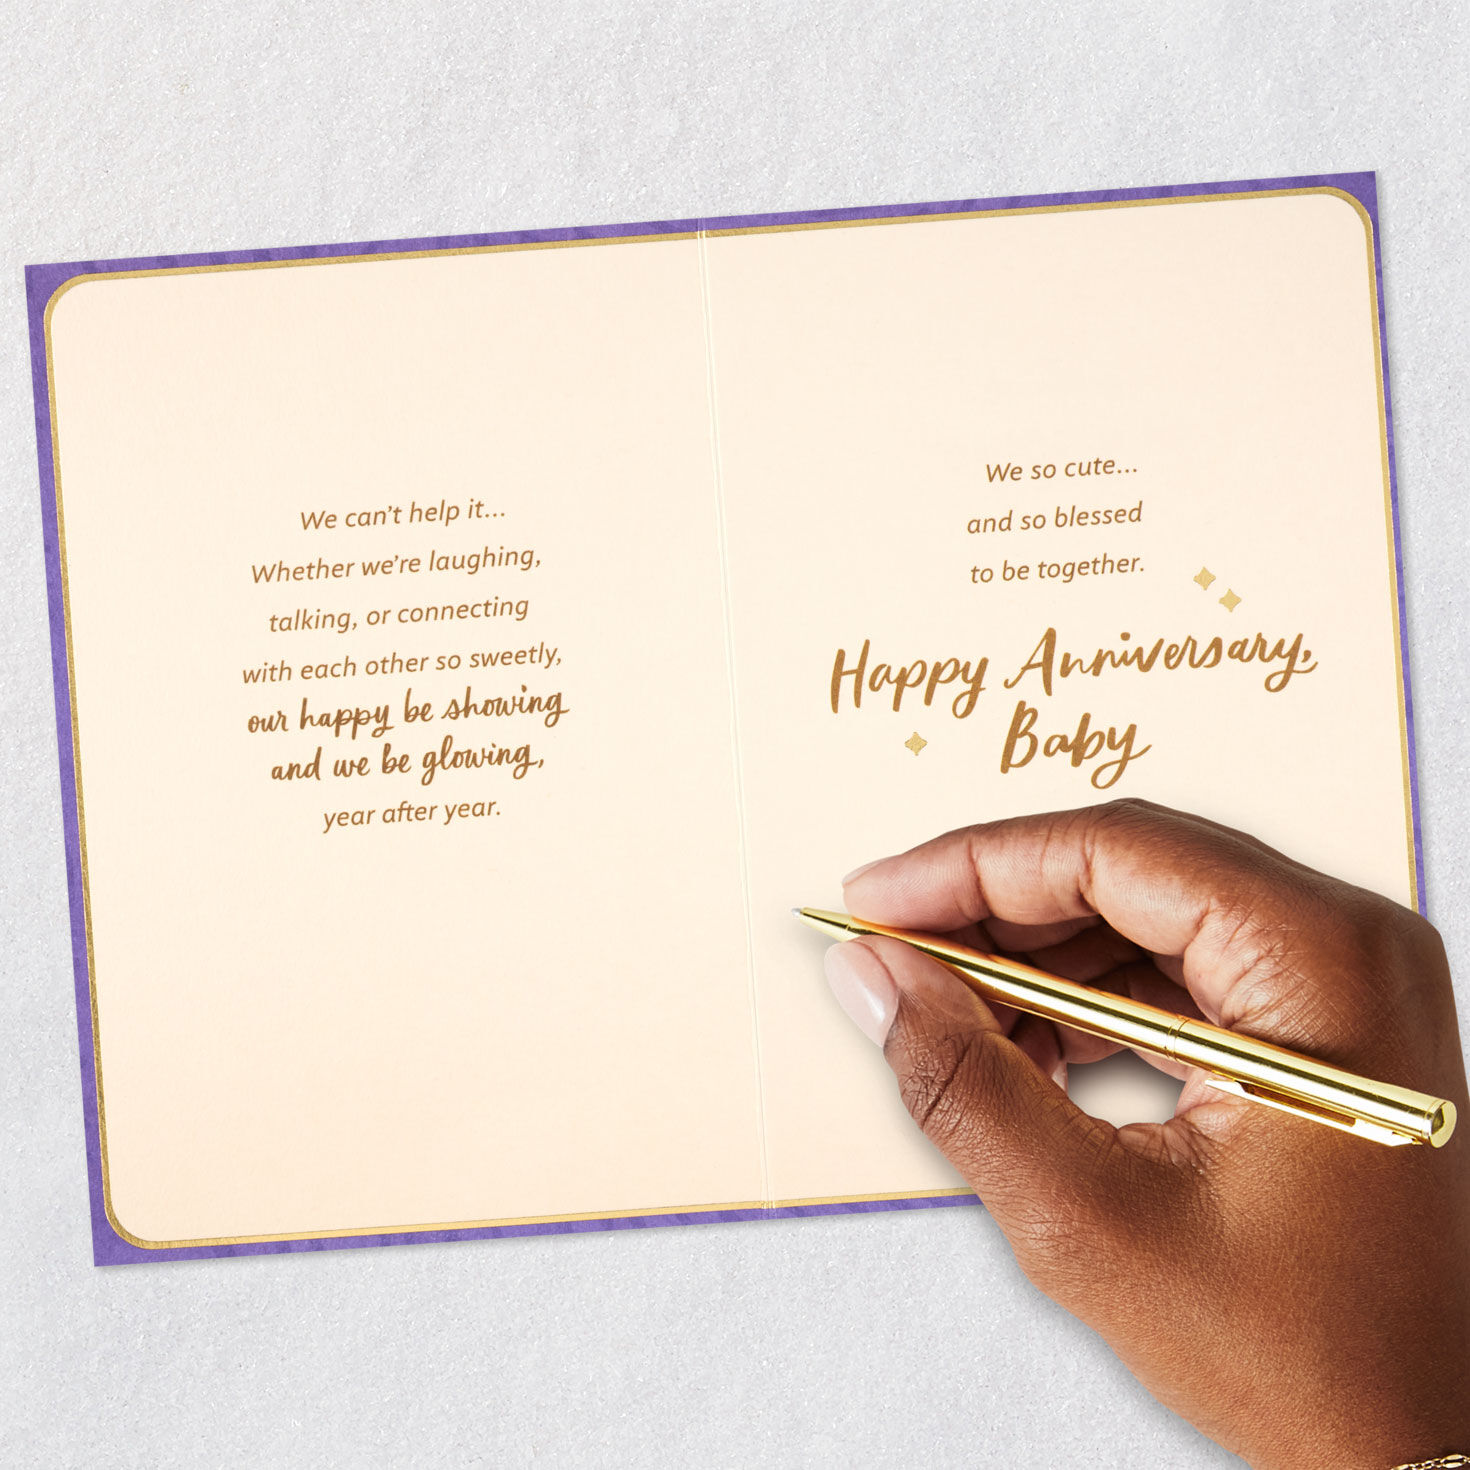 We can't help it...
Whether we're laughing,
talking, or connecting
with each other so sweetly,
our happy be showing
and we be glowing,
year after year.
We so cute...
and so blessed
to be together.
Happy Anniversary,
Baby